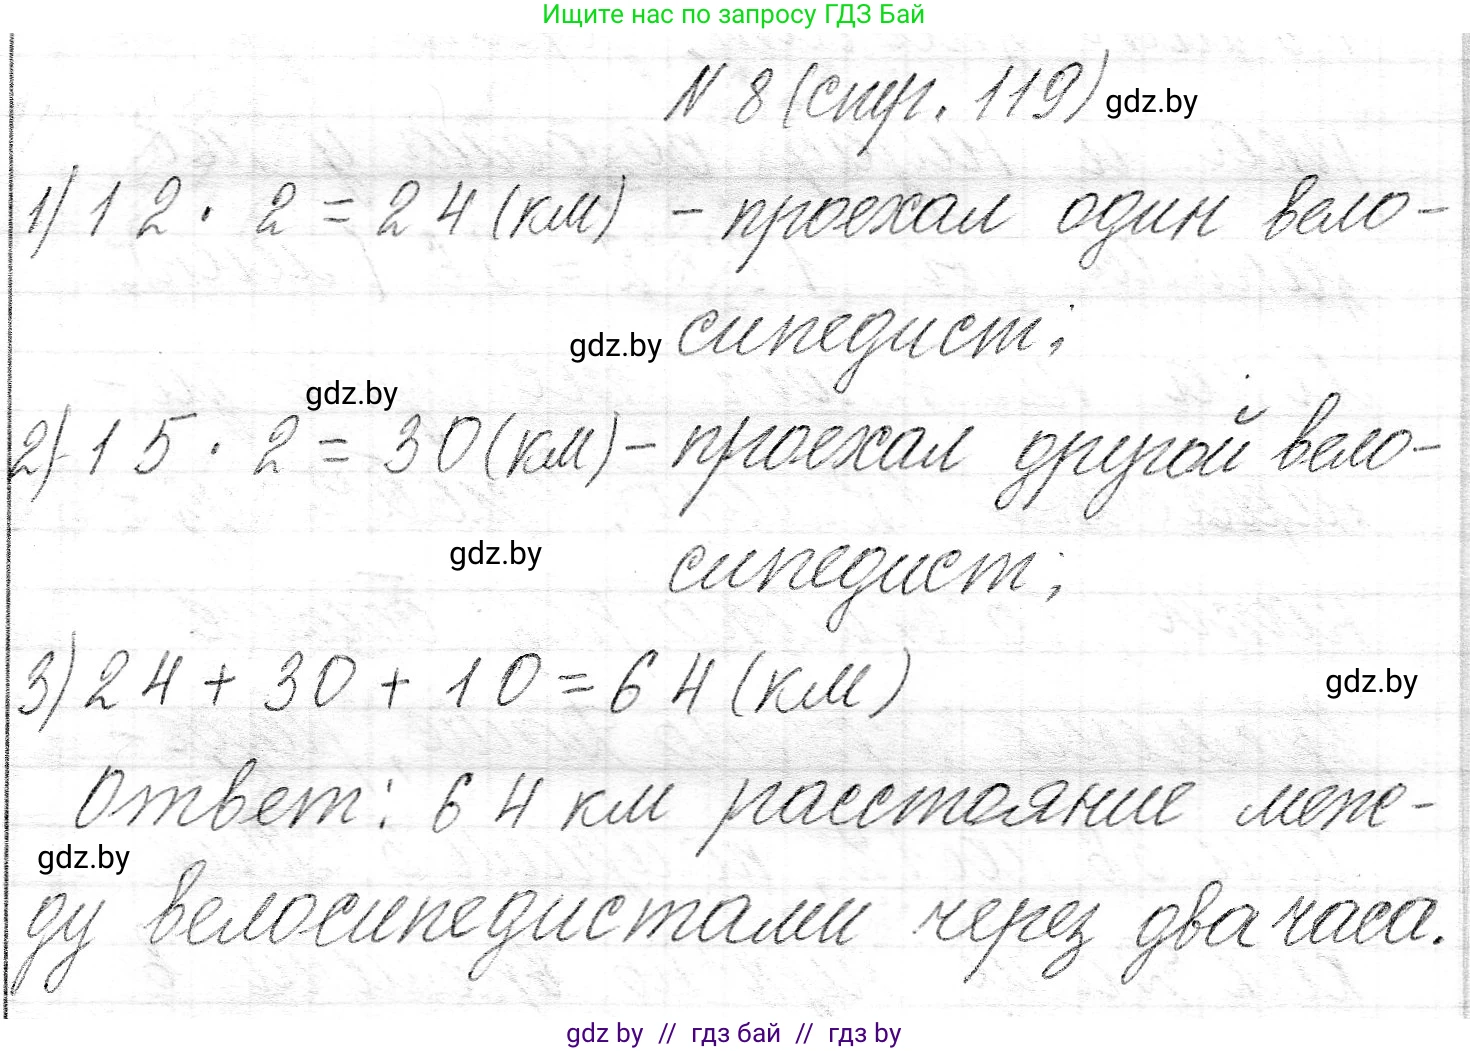 Ищите нас по запросу ГДЗ Бай
N 8 (стр. 119) gdz.by
1) 12 · 2 = 24 (км) - проехал один вело-
gdz.by сипедист;
gdz.by
2) 15 · 2 = 30 (км) - проехал другой вело-
gdz.by сипедист;
3) 24 + 30 + 10 = 64 (км) gdz.by
Ответ: 64 км расстояние меж-
gdz.by
ду велосипедистами через два часа.
gdz by // гдз бай // гдз by